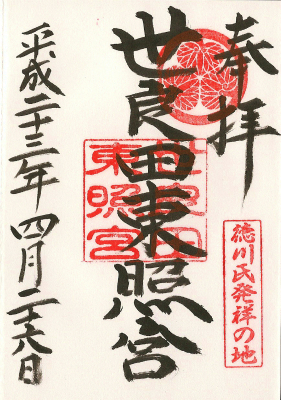 奉拝
徳川氏発祥の地
世良田東照宮
世良田
東照宮
平成二十三年四月二十六日